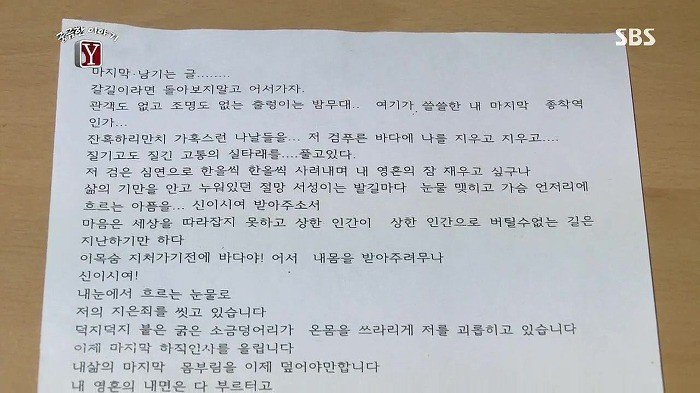 궁금한 이야기
Y
SBS
마지막·남기는 글........
갈길이라면 돌아보지말고 어서가자.
관객도 없고 조명도 없는 출렁이는 밤무대.. 여기가 쓸쓸한 내 마지막 종착역
인가...
잔혹하리만치 가혹스런 나날들을... 저 검푸른 바다에 나를 지우고 지우고....
질기고도 질긴 고통의 실타래를....풀고있다.
저 검은 심연으로 한올씩 한올씩 사려내며 내 영혼의 잠 재우고 싶구나
삶의 기만을 안고 누워있던 절망 서성이는 발길마다 눈물 맺히고 가슴 언저리에
흐르는 아픔을... 신이시여 받아주소서
마음은 세상을 따라잡지 못하고 상한 인간이 상한 인간으로 버틸수없는 길은
지난하기만 하다
이목숨 지처가기전에 바다야! 어서 내몸을 받아주려무나
신이시여!
내눈에서 흐르는 눈물로
저의 지은죄를 씻고 있습니다
덕지덕지 붙은 굵은 소금덩어리가 온몸을 쓰라리게 저를 괴롭히고 있습니다
이제 마지막 하직인사를 올립니다
내삶의 마지막 몸부림을 이제 덮어야만합니다
내 영혼의 내면은 다 부르터고